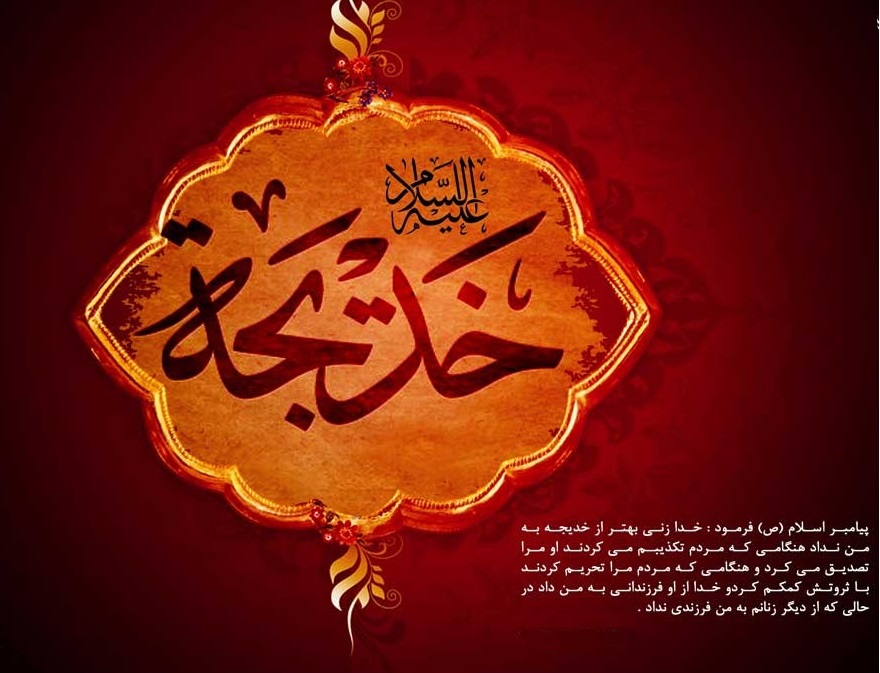 عليه السلام
خديجة
پیامبر اسلام (ص) فرمود : خدا زنی بهتر از خدیجه به
من نداد هنگامی که مردم تکذیبم می کردند او مرا
تصدیق می کرد و هنگامی که مردم مرا تحریم کردند
با ثروتش کمکم کردو خدا از او فرزندانی به من داد در
حالی که از دیگر زنانم به من فرزندی نداد .